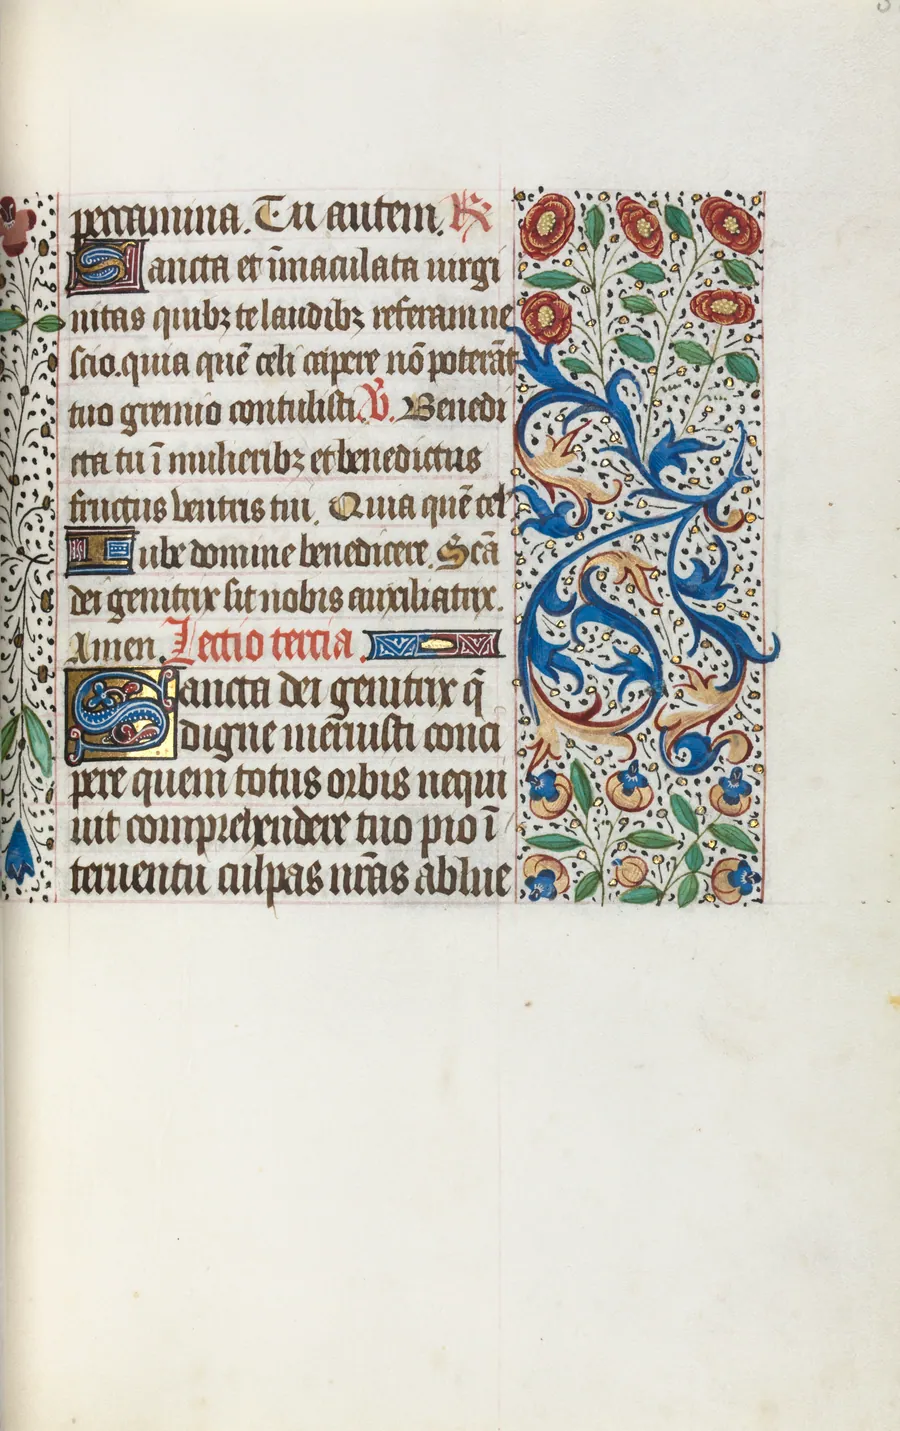 peccamina. Tu autem. R
Sancta et īmaculata uirgi
nitas quibꝫ te laudibꝫ referam ne
scio. quia quē celi capere nō poterāt
tuo gremio contulisti. V. Benedi
cta tu ī mulieribꝫ et benedictus
fructus uentris tui. Quia quē cel
Iube domine benedicere. Scā
dei genitrix sit nobis auxiliatrix.
Amen. Lectio tercia.
Sancta dei genitrix q̄
digne meruisti conci
pere quem totus orbis nequi
uit comprehendere tuo pio ī
teruentu culpas nr̄as ablue